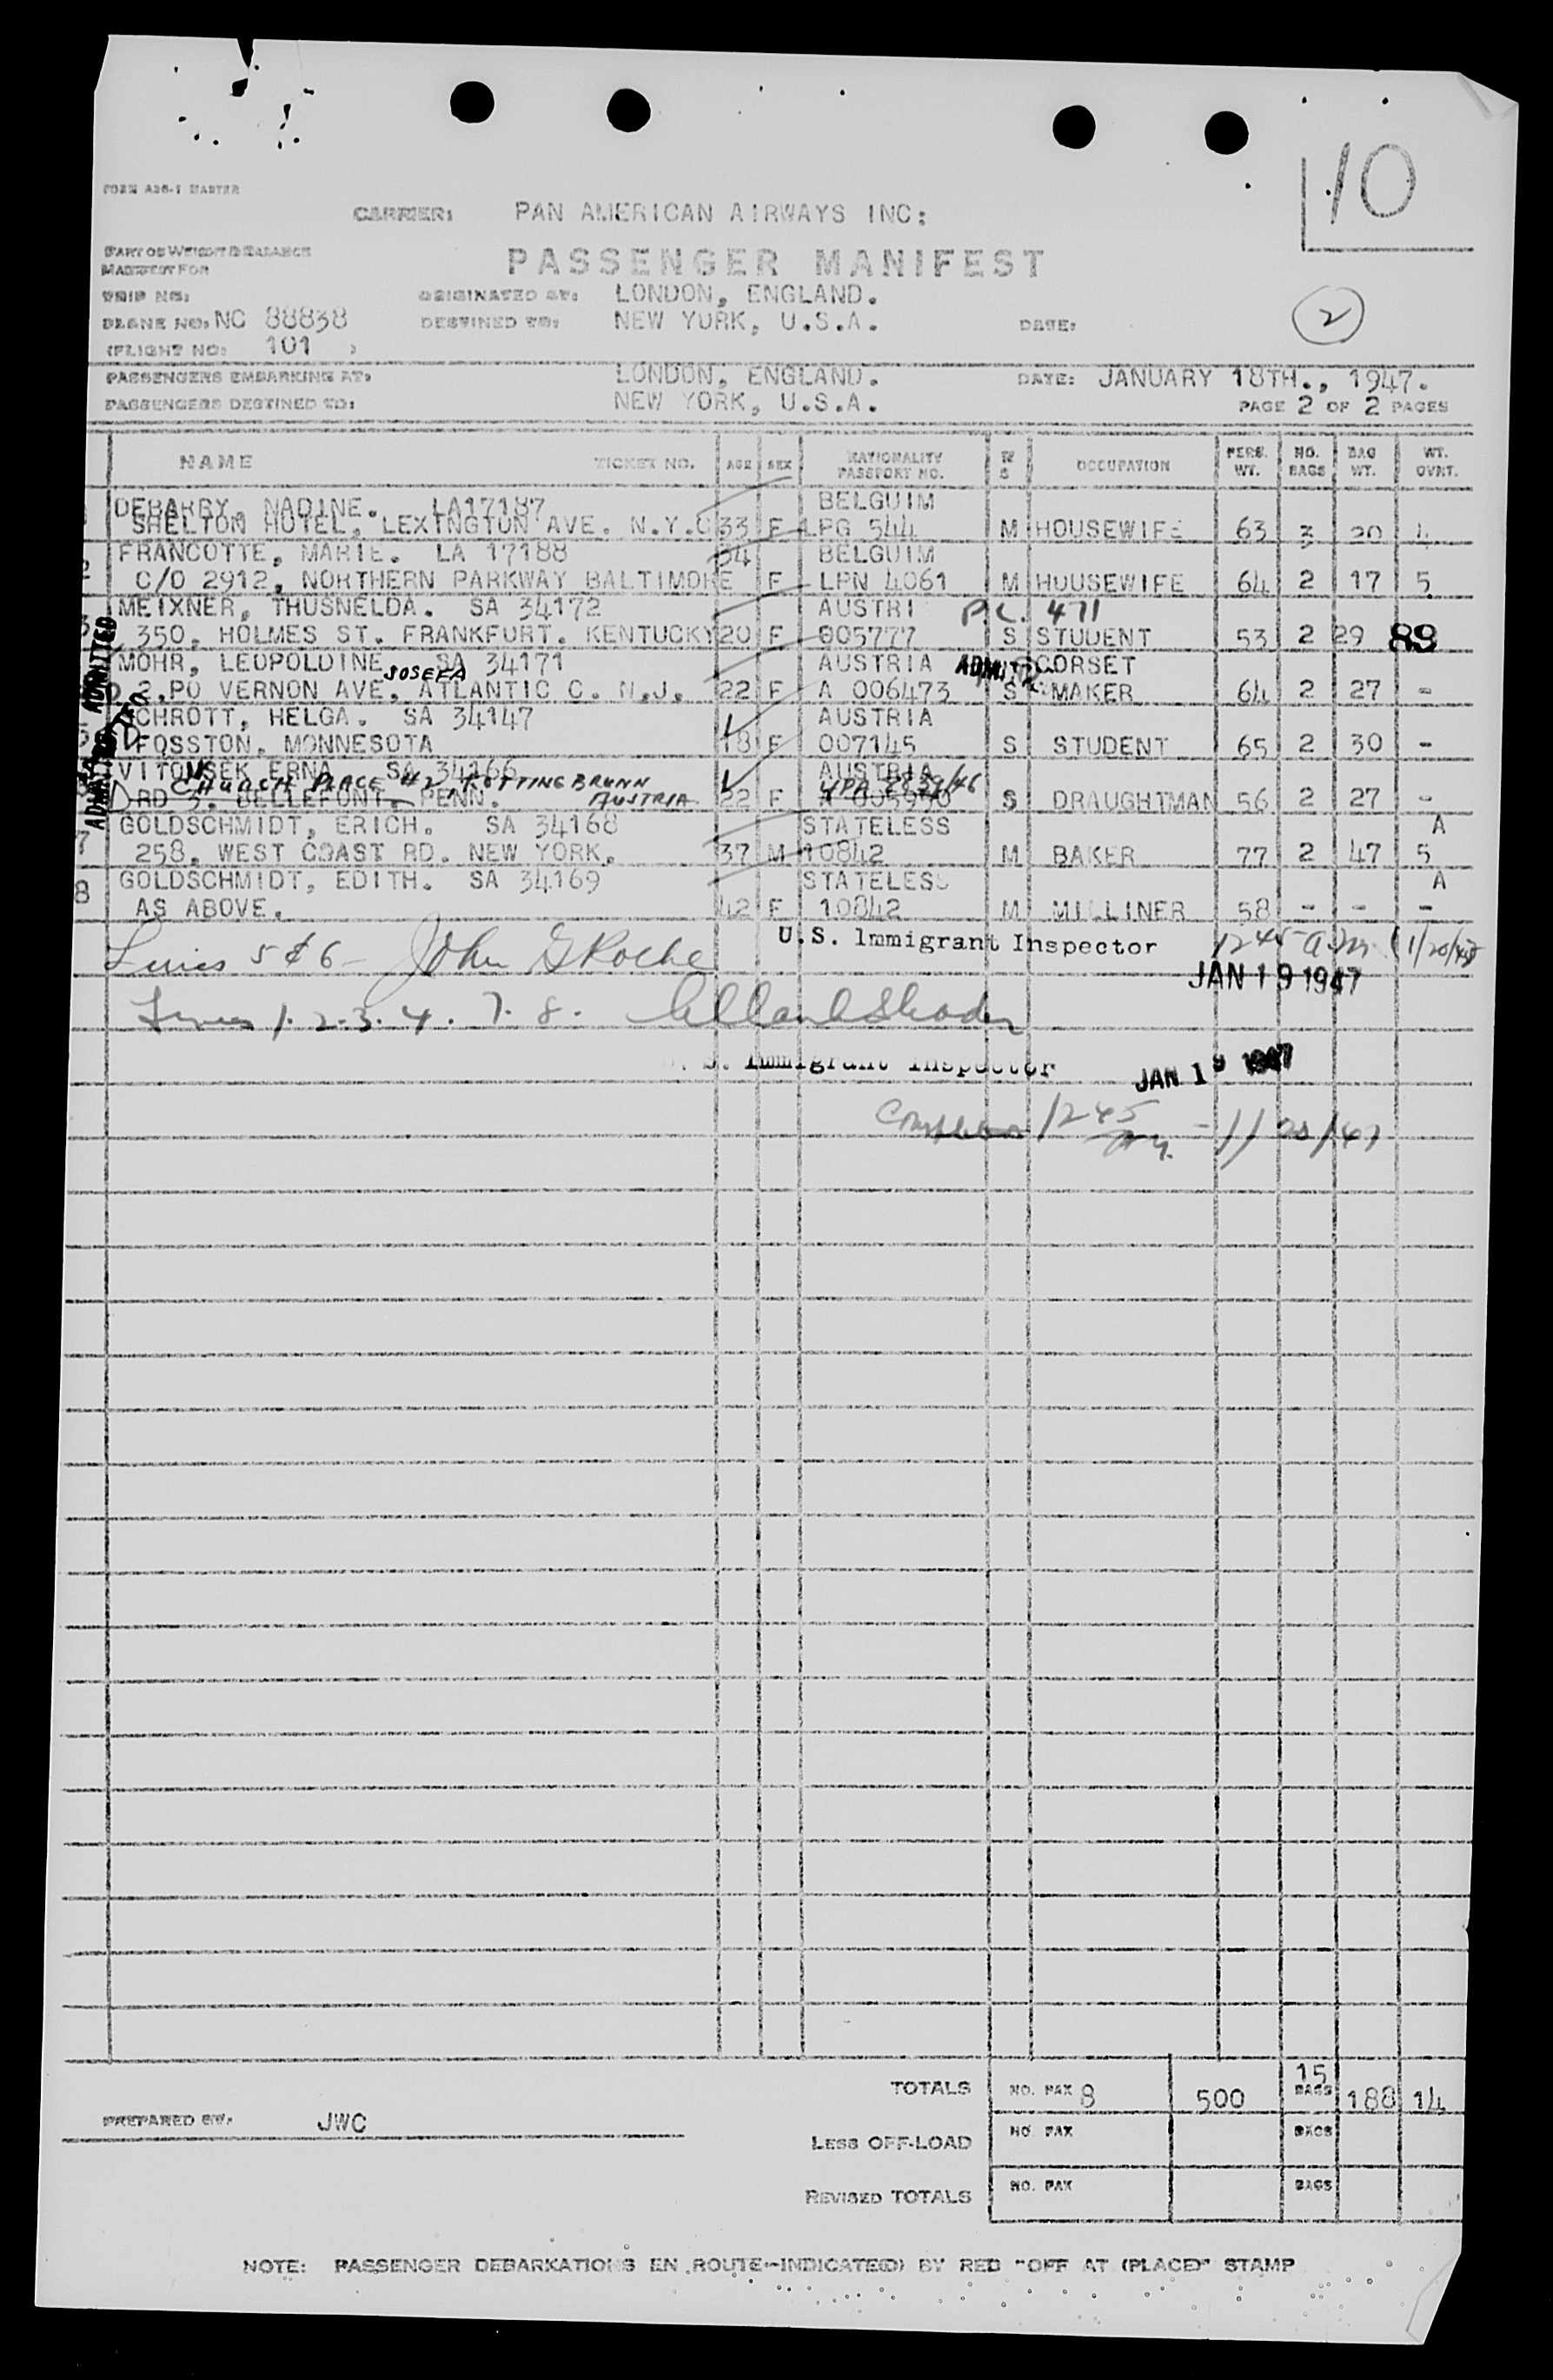 10
FORM A36-1 MASTER
CARRIER: PAN AMERICAN AIRWAYS INC:
PART OF WEIGHT & BALANCE
MANIFEST FOR
PASSENGER MANIFEST
TRIP NO: ORIGINATED AT: LONDON, ENGLAND.
PLANE NO: NC 88838 DESTINED TO: NEW YORK, U.S.A. DATE: 2
(FLIGHT NO: 101 )
PASSENGERS EMBARKING AT: LONDON, ENGLAND. DATE: JANUARY 18TH., 1947.
PASSENGERS DESTINED TO: NEW YORK, U.S.A. PAGE 2 OF 2 PAGES
NAME TICKET NO. AGE SEX NATIONALITY PASSPORT NO. M S OCCUPATION PERS. WT. NO. BAGS BAG WT. WT. OVRT.
DEBARRY, NADINE. LA17187 BELGUIM
SHELTON HOTEL, LEXINGTON AVE. N.Y.C 33 F LPG 544 M HOUSEWIFE 63 3 20 4
FRANCOTTE, MARIE. LA 17188 34 BELGUIM
C/O 2912, NORTHERN PARKWAY BALTIMORE F LPN 4061 M HOUSEWIFE 64 2 17 5
3 MEIXNER, THUSNELDA. SA 34172 AUSTRI P.L. 471
350, HOLMES ST. FRANKFURT. KENTUCKY 20 F 005777 S STUDENT 53 2 29 89
MOHR, LEOPOLDINE JOSEFA SA 34171 AUSTRIA ADMITTED CORSET
2, PO VERNON AVE, ATLANTIC C. N.J. 22 F A 006473 S MAKER 64 2 27 -
5 SCHROTT, HELGA. SA 34147 AUSTRIA
FOSSTON, MONNESOTA 18 F 007145 S STUDENT 65 2 30 -
VITOUSEK ERNA SA 34166 AUSTRIA
CHURCH PLACE #2, KOTTINGBRUNN AUSTRIA
RD 3. BELLEFONT. PENN. 22 F S DRAUGHTMAN 56 2 27 -
7 GOLDSCHMIDT, ERICH. SA 34168 STATELESS A
258, WEST COAST RD. NEW YORK, 37 M 10842 M BAKER 77 2 47 5
8 GOLDSCHMIDT, EDITH. SA 34169 STATELESS A
AS ABOVE. 42 F 10842 M MILLINER 58 - - -
ADMITTED
ADMITTED
Lines 5 & 6 - John G Roche U.S. Immigrant Inspector 1245 a.m. (1/20/47)
JAN 19 1947
Lines 1. 2. 3. 4. 7. 8.
U. S. Immigrant Inspector JAN 19 1947
1245 - 1/20/47
TOTALS NO. PAX 8 500 15 BAGS 188 14
PREPARED BY: JWC
LESS OFF-LOAD NO. PAX BAGS
REVISED TOTALS NO. PAX BAGS
NOTE: PASSENGER DEBARKATIONS EN ROUTE-INDICATE(D) BY RED "OFF AT (PLACE)" STAMP